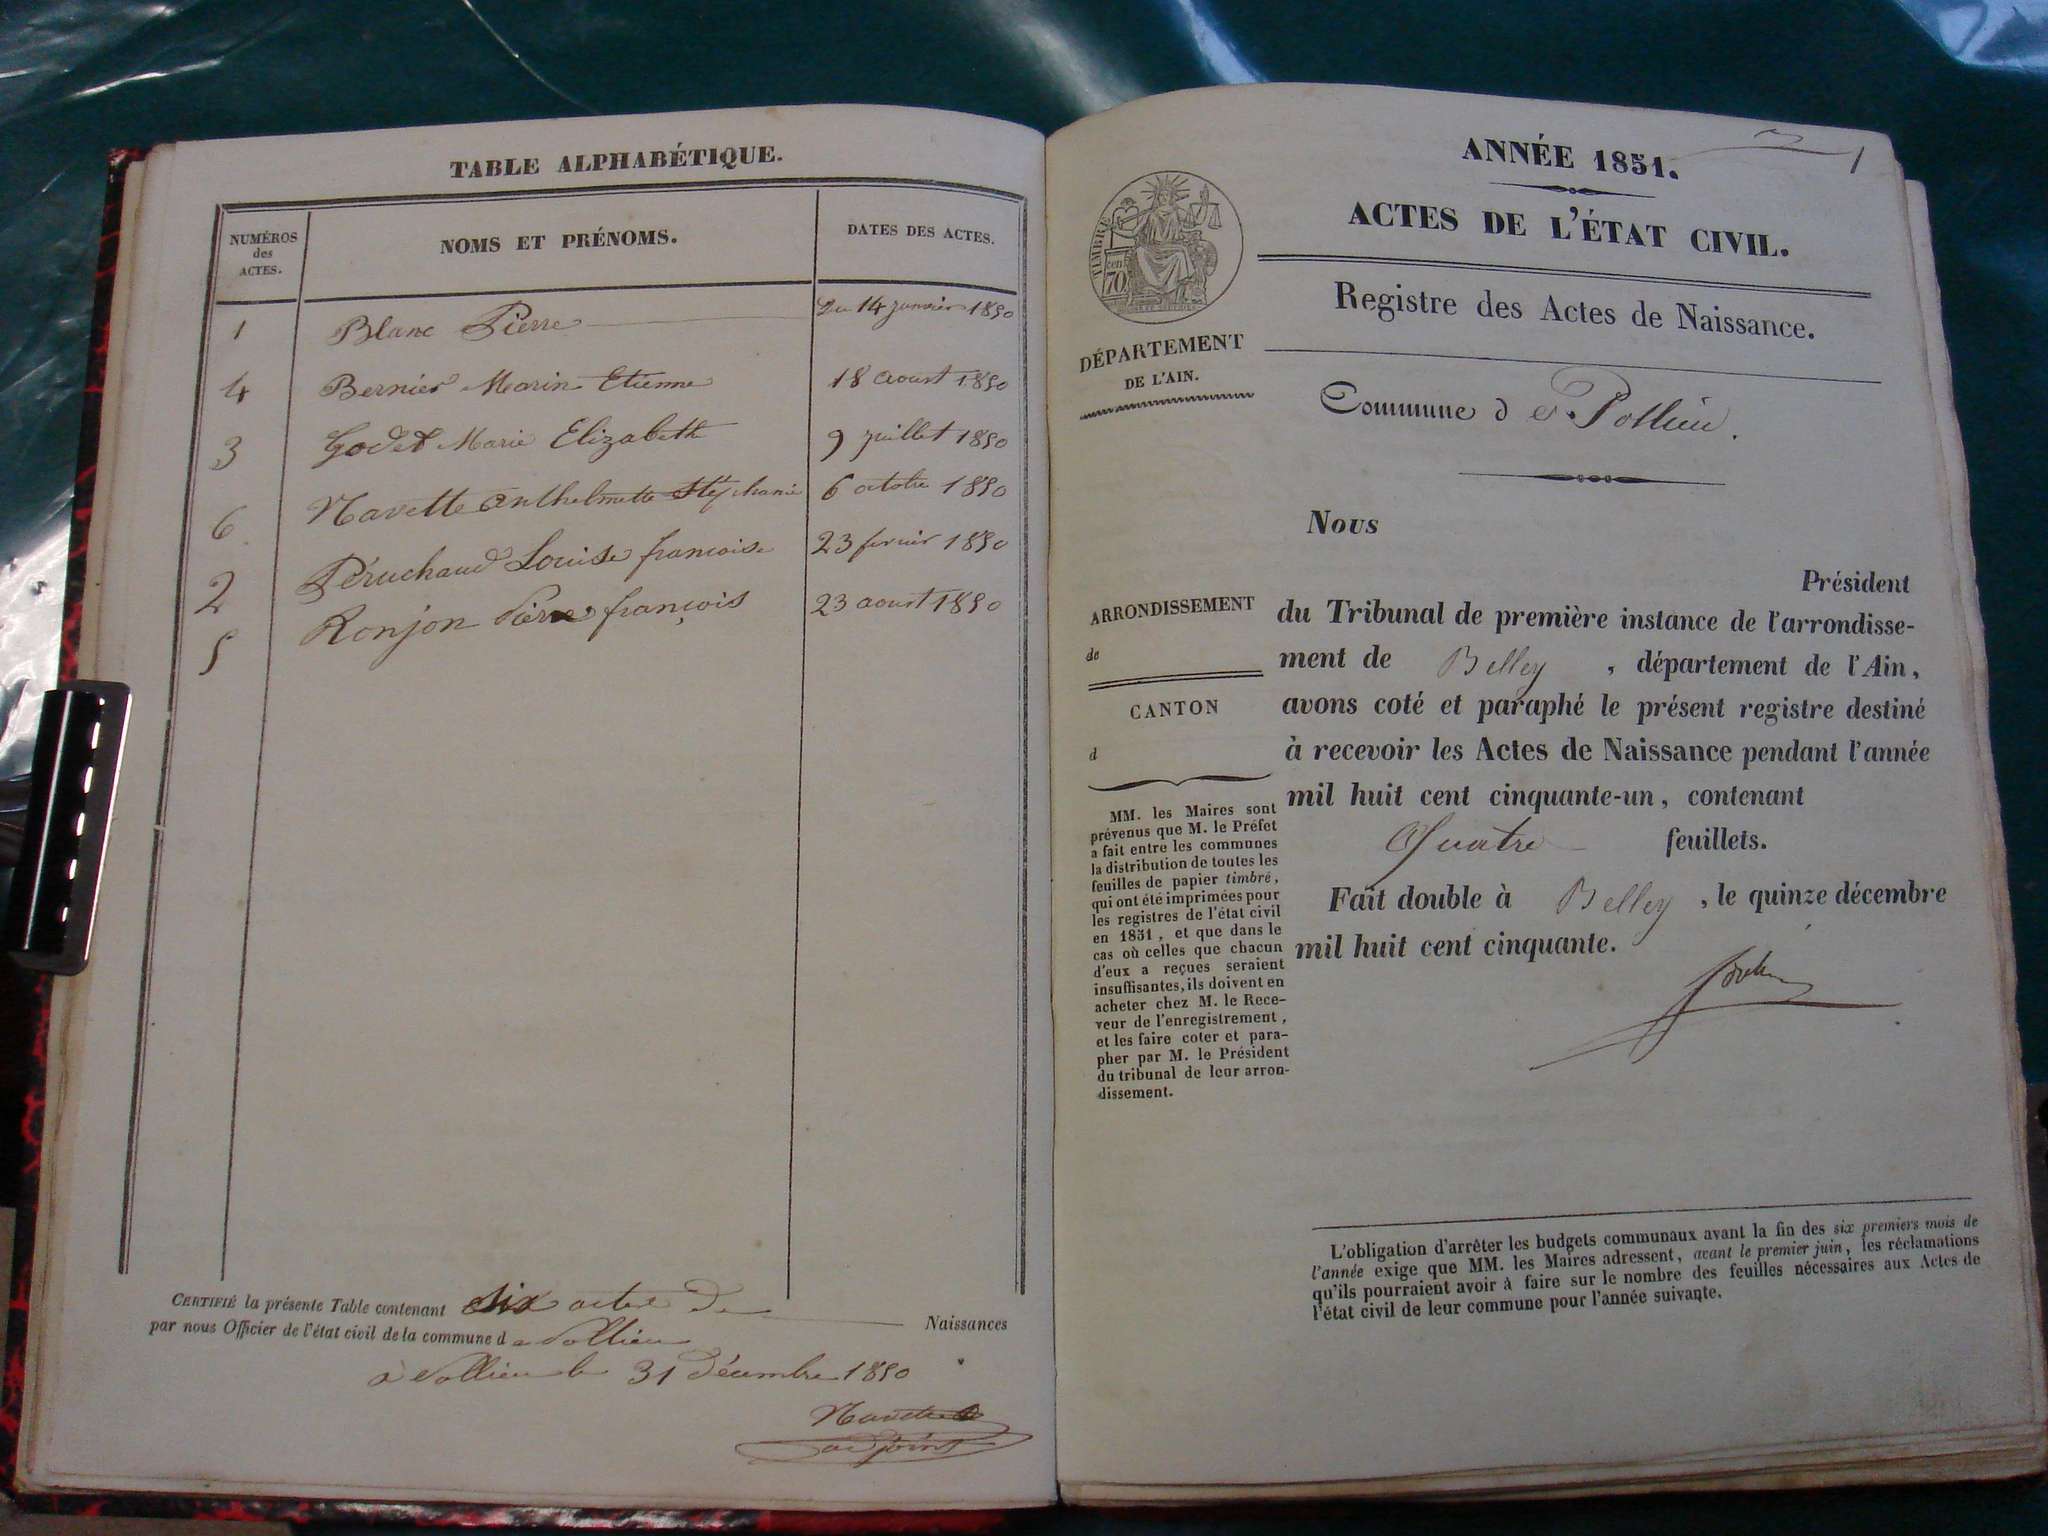 TABLE ALPHABÉTIQUE.
NUMÉROS des ACTES.
NOMS ET PRÉNOMS.
DATES DES ACTES.
1 Blanc Pierre Du 14 janvier 1850
4 Bernier Marin Etienne 18 aoust 1850
3 Godet Marie Elizabeth 9 juillet 1850
6 Navette Anthelmette Stéphanie 6 octobre 1850
2 Péruchaud Louise françoise 23 fevrier 1850
5 Ronjon Pierre françois 23 aoust 1850
CERTIFIÉ la présente Table contenant six actes de Naissances
par nous Officier de l'état civil de la commune de Pollieu
à Pollieu le 31 décembre 1850
adjoint
1
ANNÉE 1851.
ACTES DE L'ÉTAT CIVIL.
Registre des Actes de Naissance.
TIMBRE
cen
70
DÉPARTEMENT
DE L'AIN.
Commune de Pollieu.
Nous
Président
du Tribunal de première instance de l'arrondisse-
ment de Belley, département de l'Ain,
avons coté et paraphé le présent registre destiné
à recevoir les Actes de Naissance pendant l'année
mil huit cent cinquante-un, contenant
Quatre feuillets.
Fait double à Belley, le quinze décembre
mil huit cent cinquante.
ARRONDISSEMENT
de
CANTON
d
MM. les Maires sont
prévenus que M. le Préfet
a fait entre les communes
la distribution de toutes les
feuilles de papier timbré,
qui ont été imprimées pour
les registres de l'état civil
en 1851, et que dans le
cas où celles que chacun
d'eux a reçues seraient
insuffisantes, ils doivent en
acheter chez M. le Rece-
veur de l'enregistrement,
et les faire coter et para-
pher par M. le Président
du tribunal de leur arron-
dissement.
L'obligation d'arrêter les budgets communaux avant la fin des six premiers mois de
l'année exige que MM. les Maires adressent, avant le premier juin, les réclamations
qu'ils pourraient avoir à faire sur le nombre des feuilles nécessaires aux Actes de
l'état civil de leur commune pour l'année suivante.